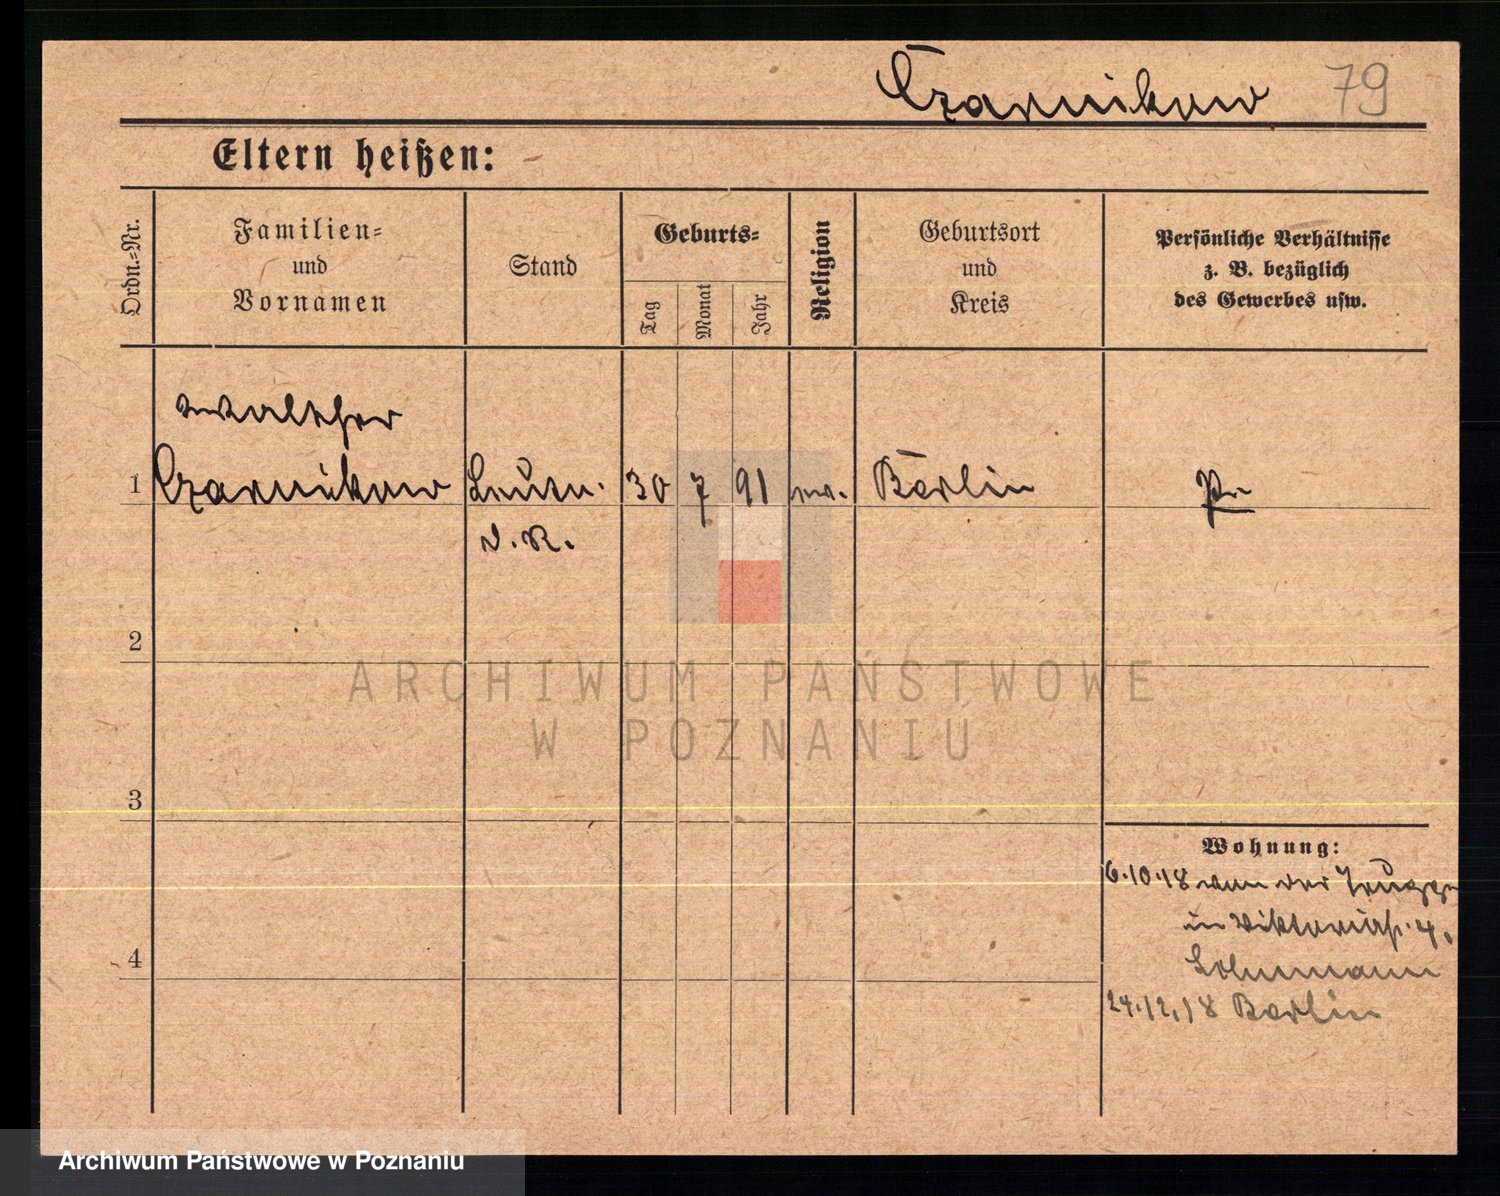 Czarnikow 79
Eltern heißen:
Ordn.-Nr.
Familien-
und
Vornamen
Stand
Geburts-
Tag
Monat
Jahr
Religion
Geburtsort
und
Kreis
Persönliche Verhältnisse
z. B. bezüglich
des Gewerbes usw.
Walther
1 Czarnikow Leutn. 30 7 91 ev. Berlin Pr.
d. R.
2
3
4
Wohnung:
6.10.18 von der Truppe
in Viktoriastr. 4.
24.12.18 Berlin
ARCHIWUM PAŃSTWOWE
W POZNANIU
Archiwum Państwowe w Poznaniu